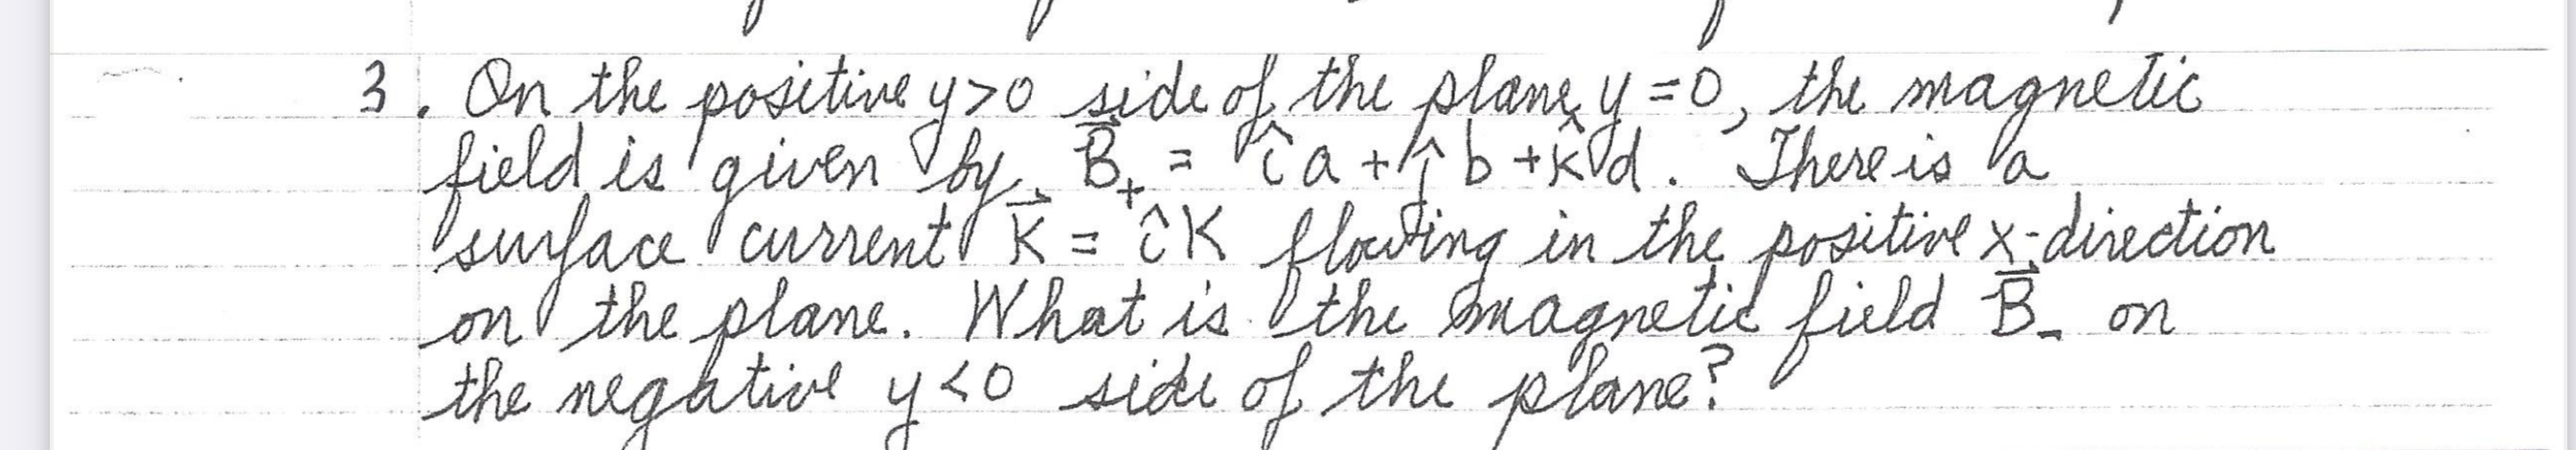 3. On the positive y>0 side of the plane y=0, the magnetic
field is given by B⃗₊ = î a + ĵ b + k̂ d. There is a
surface current K⃗ = î K flowing in the positive x-direction
on the plane. What is the magnetic field B⃗₋ on
the negative y<0 side of the plane?